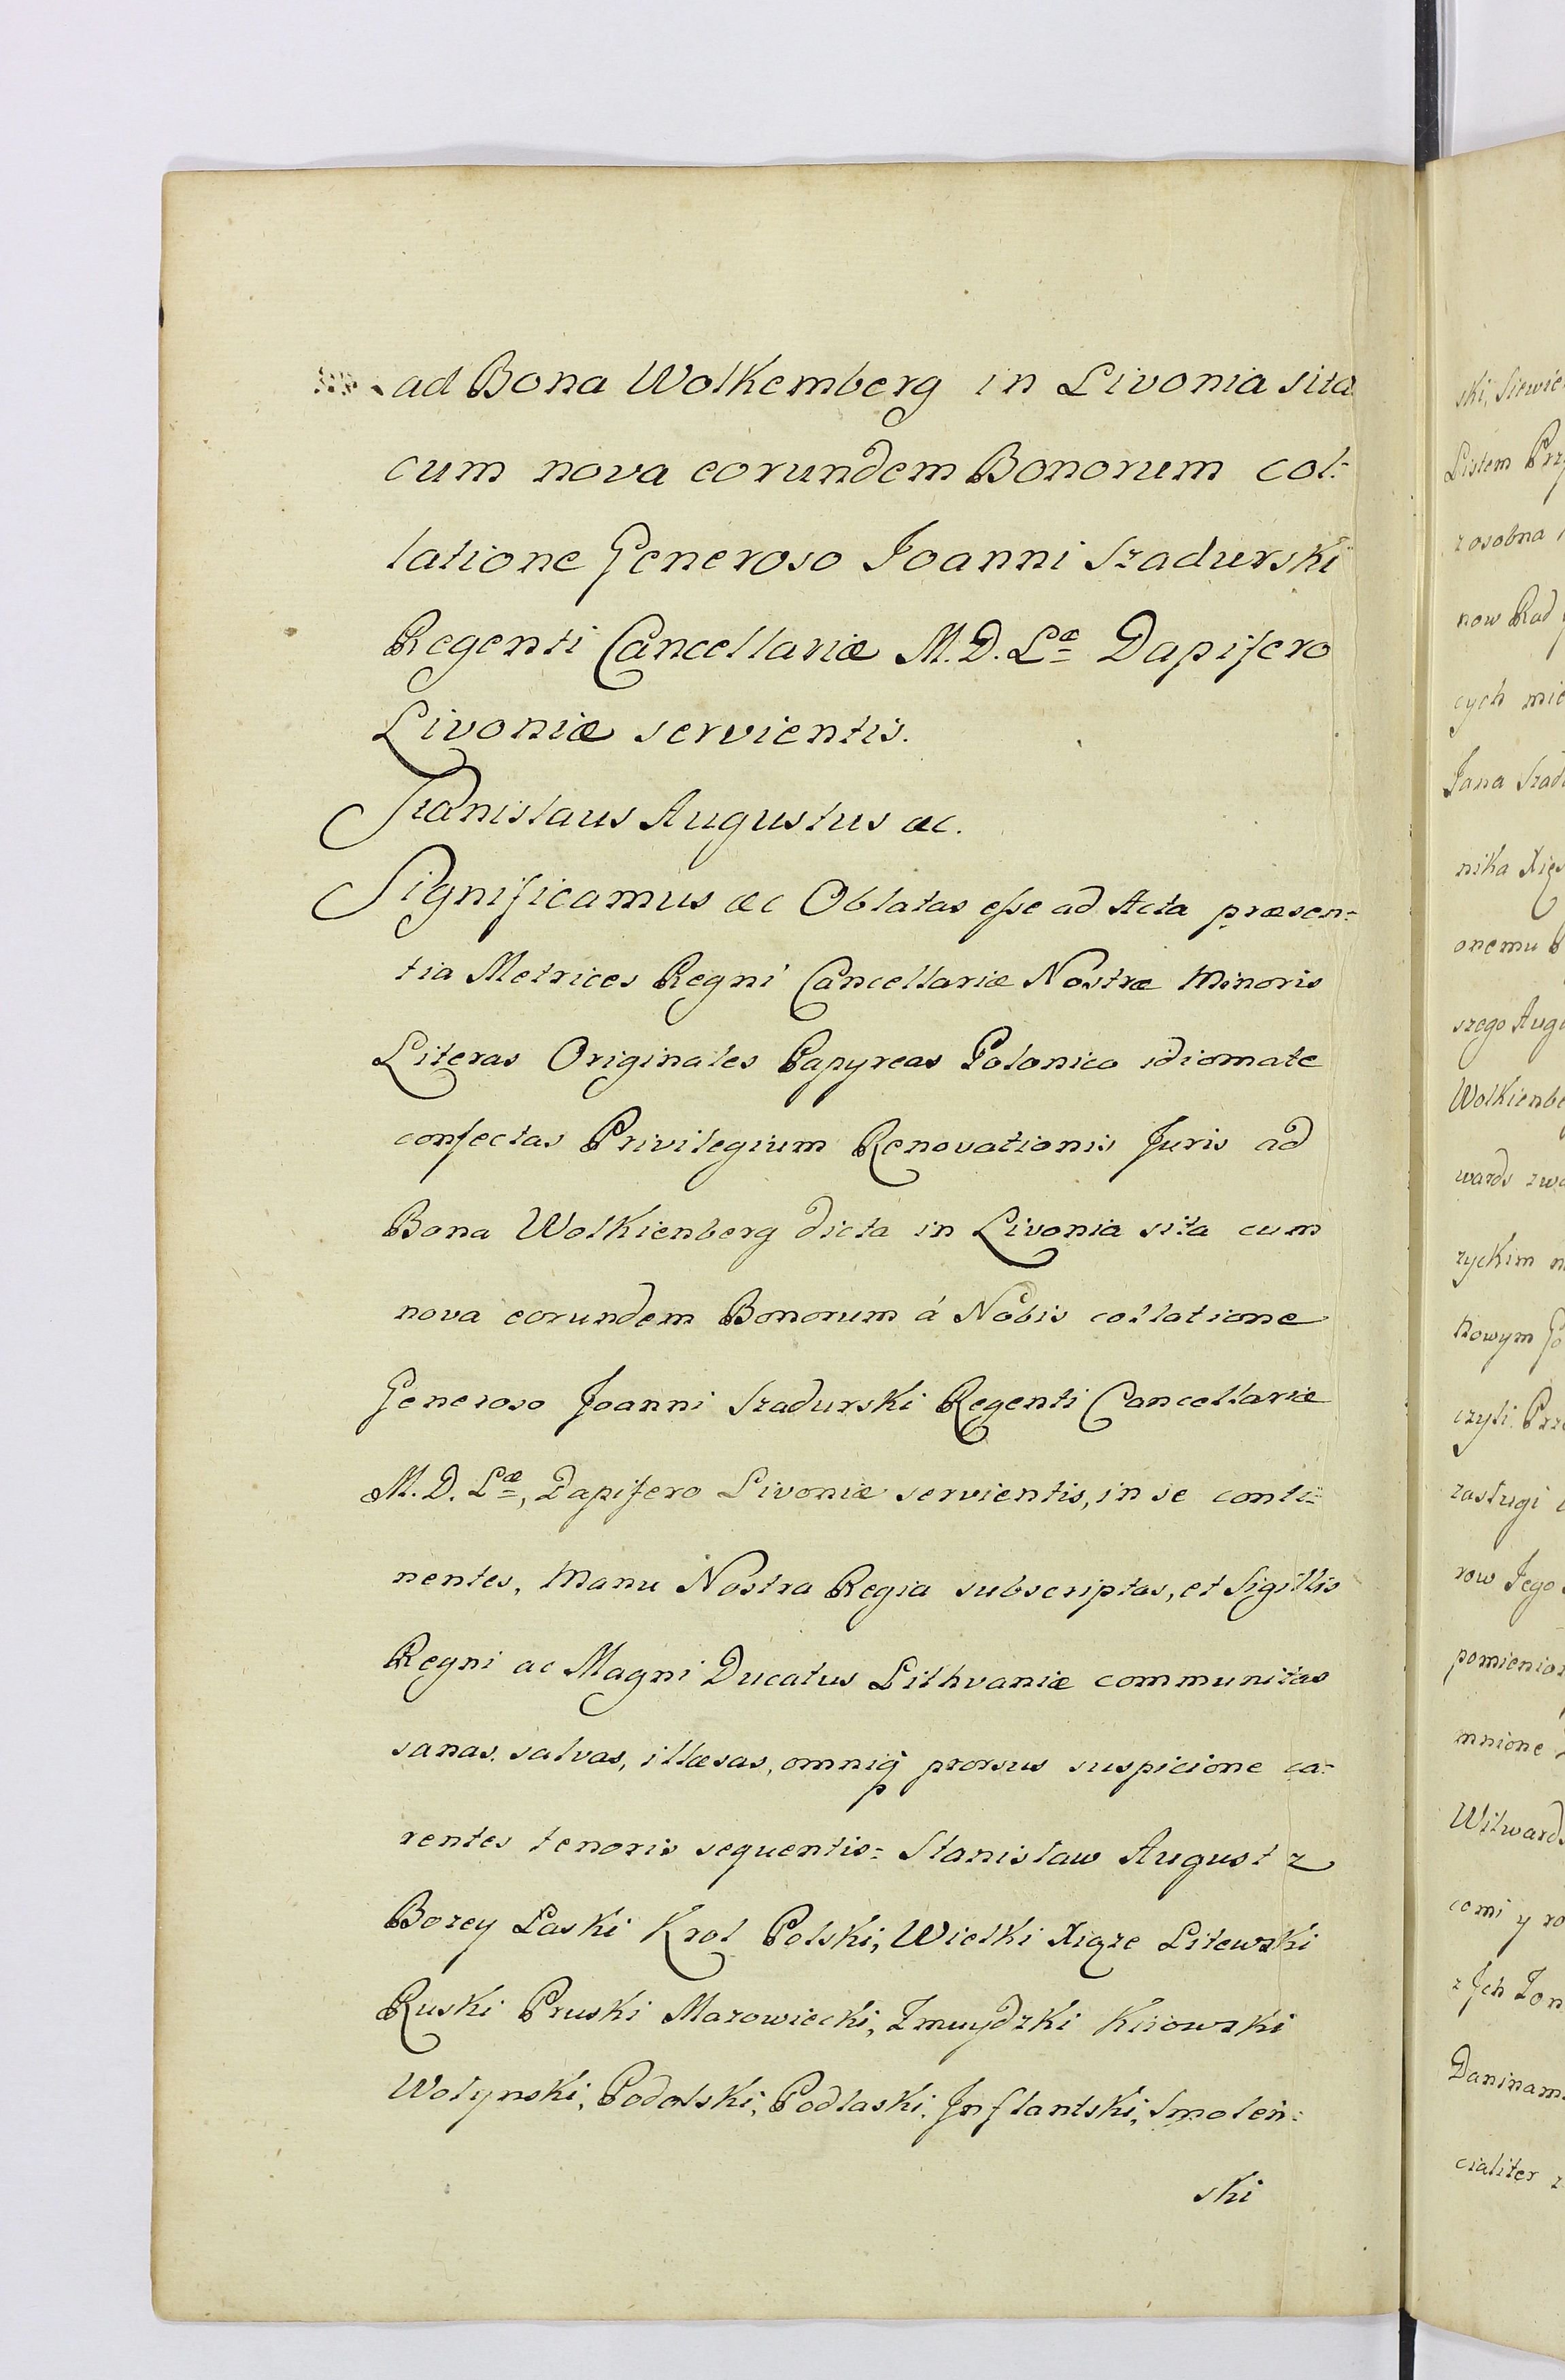 ad Bona Wolkemberg in Livonia sita
cum nova eorundem Bonorum col=
latione Generoso Joanni Szadurski
Regenti Cancellariæ M. D. Læ Dapifero
Livoniæ servientis.
Stanislaus Augustus &c.
Significamus &c Oblatas esse ad Acta præsen=
tia Metrices Regni Cancellariæ Nostræ Minoris
Literas Originales Papyreas Polonico idiomate
confectas Privilegium Renovationis Juris ad
Bona Wolkienberg dicta in Livonia sita cum
nova eorundem Bonorum á Nobis collatione
Generoso Joanni Szadurski Regenti Cancellariæ
M. D. Læ, Dapifero Livoniæ servientis, in se conti=
nentes, Manu Nostra Regia subscriptas, et Sigillis
Regni ac Magni Ducatus Lithvaniæ communitas
sanas, salvas, illæsas, omniq prorsus suspicione ca=
rentes tenoris sequentis= Stanisław August z
Bozey Łaski Krol Polski, Wielki Xiąze Litewski
Ruski Pruski Mazowiecki, Zmuydzki Kiiowski
Wołynski, Podolski, Podlaski, Inflantski, Smolen=
ski
ski, Siewie
Listem Prz
zosobna
now Rad
cych mie
Jana Szad
nika Xięs
onemu
szego Aug
Wolkienbe
wards zwa
ryckim
nowym
czyli Prz
zasługi
row Jego
pomienio
mnione
Witwards
comi y ro
z Jch Zon
Daninam
cialiter